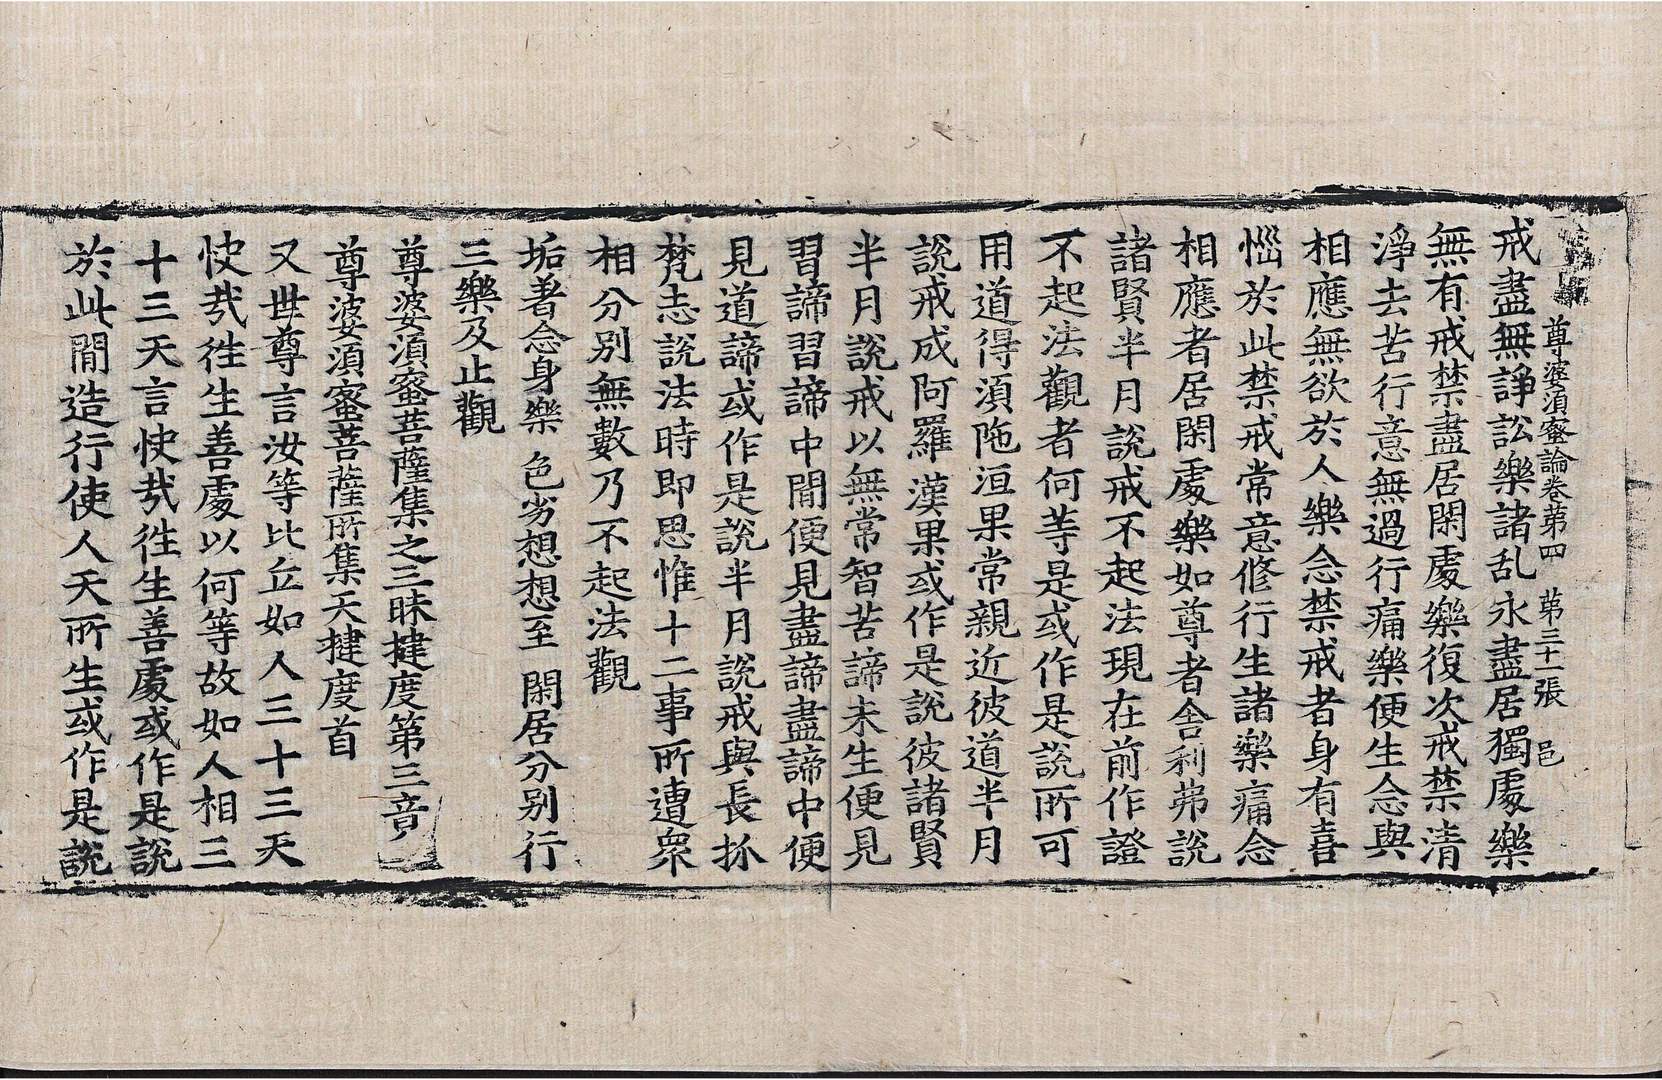 尊婆須蜜論卷苐四 苐三十一張 邑
戒盡無諍訟樂諸乱永盡居獨處樂
無有戒禁盡居閑處樂復次戒禁清
淨去苦行意無過行痛樂便生念與
相應無欲於人樂念禁戒者身有喜
惱於此禁戒常意修行生諸樂痛念
相應者居閑處樂如尊者舍利弗說
諸賢半月說戒不起法現在前作證
不起法觀者何等是或作是說所可
用道得須陁洹果常親近彼道半月
說戒成阿羅漢果或作是說彼諸賢
半月說戒以無常智苦諦未生便見
習諦習諦中閒便見盡諦盡諦中便
見道諦或作是說半月說戒與長抓
梵志說法時即思惟十二事所遭衆
相分別無數乃不起法觀
垢著念身樂 色劣想想至 閑居分別行
三樂及止觀
尊婆須蜜菩薩集之三昧揵度第三竟
尊婆須蜜菩薩所集天揵度首
又世尊言汝等比丘如人三十三天
快哉徃生善處以何等故如人相三
十三天言快哉徃生善處或作是說
於此閒造行使人天所生或作是說